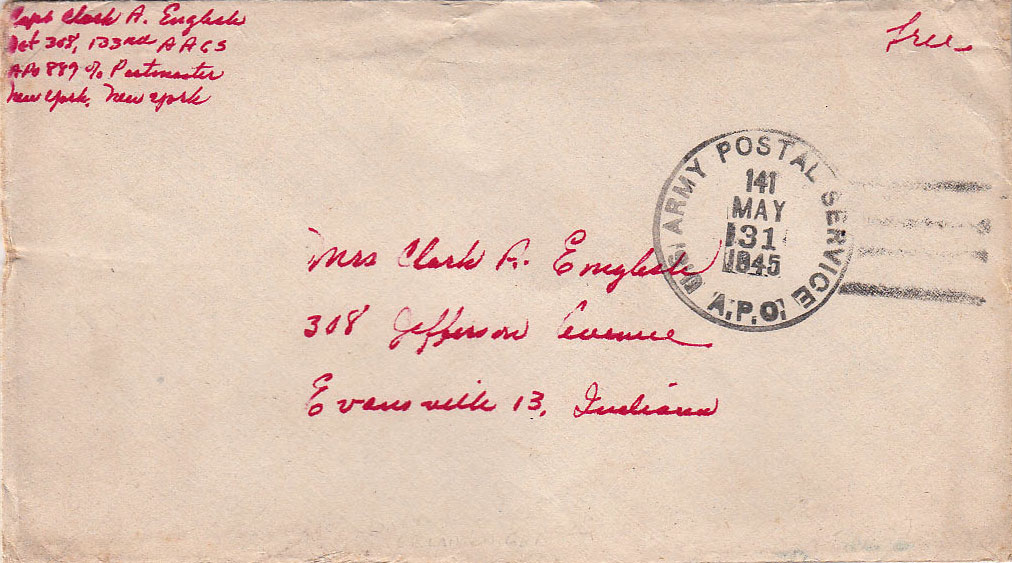 Capt Clark A. English
Det 308, 133rd AACS
APO 889 % Postmaster
New York, New York
Free
U.S. ARMY POSTAL SERVICE
141
MAY
31
1945
A.P.O.
Mrs Clark A. English
308 Jefferson Avenue
Evansville 13, Indiana